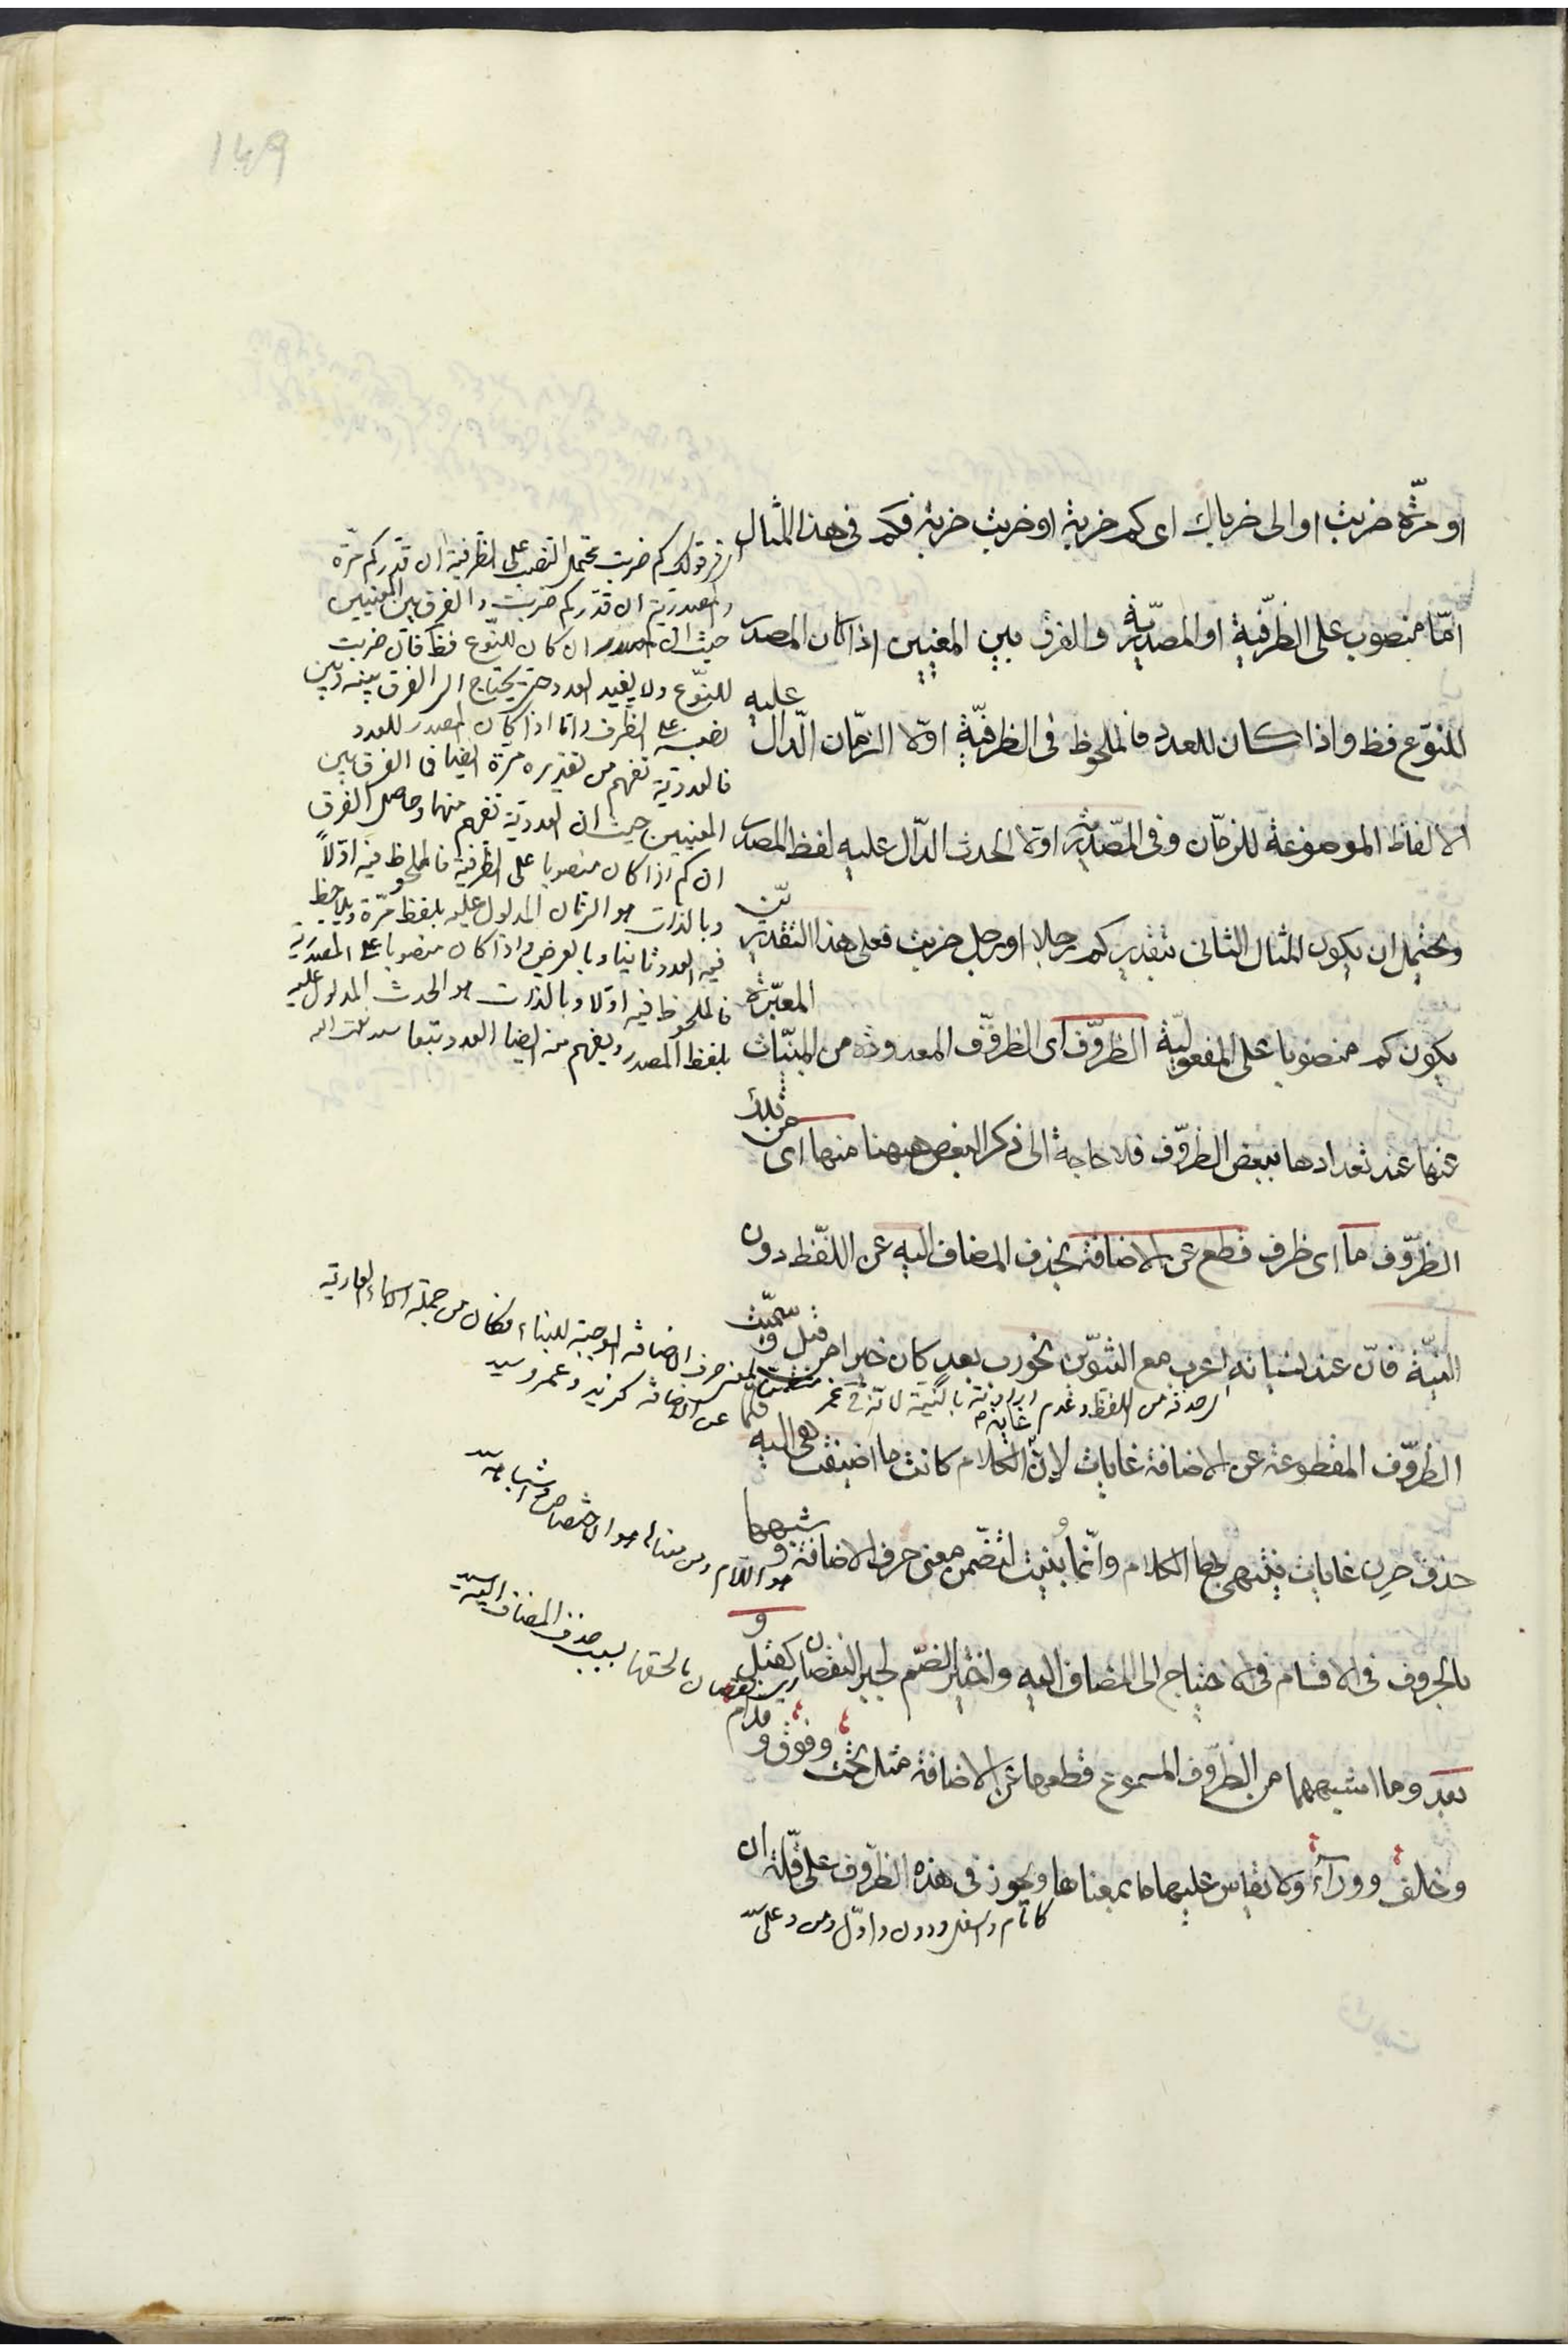 ١٤٩
او مرّة ضربت او الى ضرباك اى كم ضربة او ضربت ضربة فكم فى هذا المثال
امّا منصوب على الظرفية او المصدرية والفرق بين المعنيين اذا كان المصدر
للنوع فظ واذا كان للعدد فالملحوظ فى الظرفية اوّلا الزمان الدّال عليه
الالفاظ الموضوعة للزمان وفى المصدرية اوّلا الحدث الدّال عليه لفظ المصدر
ويحتمل ان يكون المثال الثانى بتقدير كم رجلا او رجل ضربت فعلى هذا التقدير
يكون كم منصوبا على المفعولية الظروف اى الظروف المعدودة من المبنيّات المعبّرة
عنها عند تعدادها ببعض الظروف فلا حاجة الى ذكر البعض ههنا منها اى من تلك
الظروف ما اى ظرف قطع عن الاضافة بحذف المضاف اليه عن اللفظ دون
النيّة فانّ عند نسيانه اعرب مع التنوين نحو رب بعد كان خيرا من قبل وسمّيت
الظروف المقطوعة عن الاضافة غايات لانّ غاية الكلام كانت ما اضيفت هى اليه فلمّا
حذف صرن غايات ينتهى بها الكلام وانّما بنيت لتضمن معنى حرف الاضافة وشبهها
بالحروف فى الاقسام فى الاحتياج الى المضاف اليه واختير الضّم لجبر النقصان كقبل و
بعد وما اشبههما من الظروف المسموع قطعها عن الاضافة مثل تحت وفوق وقدام
وخلف ووراء ولا يقاس عليها ما بمعناها ويجوز فى هذه الظروف على قلّة ان
قولك كم ضربت يحتمل النصب على الظرفية ان قدّر كم مرّة
والمصدرية ان قدّر كم ضربت والفرق بين المعنيين
حيث ان المصدر ان كان للنوع فظ فان ضربت
للنوع ولا يفيد العدد حتى يحتاج الى الفرق بينه وبين
نصبه على الظرف واما اذا كان المصدر للعدد
فالعددية تفهم من تقديره مرة ايضا فالفرق بين
المعنيين حيث ان العددية تفهم منهما وحاصل الفرق
ان كم اذا كان منصوبا على الظرفية فالملحوظ فيه اوّلاً
وبالذات هو الزمان المدلول عليه بلفظ مرّة ويلاحظ
فيه العدد ثانيا وبالعرض واذا كان منصوبا على المصدرية
فالملحوظ فيه اوّلا وبالذات هو الحدث المدلول عليه
بلفظ المصدر ويفهم منه ايضا العدد تبعا
لمعنى حرف الاضافة الموجبة للبناء فكان من جملة اسماء العارية
عن الاضافة كزيد وعمرو سيد
اى حذفه من اللفظ وعدم ارادته بالنية لانه فى
هو اللام ومن معناها هو الاختصاص
اى النقصان بالحقها بسبب حذف المضاف اليه سيد
كامام واسفل ودون واوّل ومن وعلى